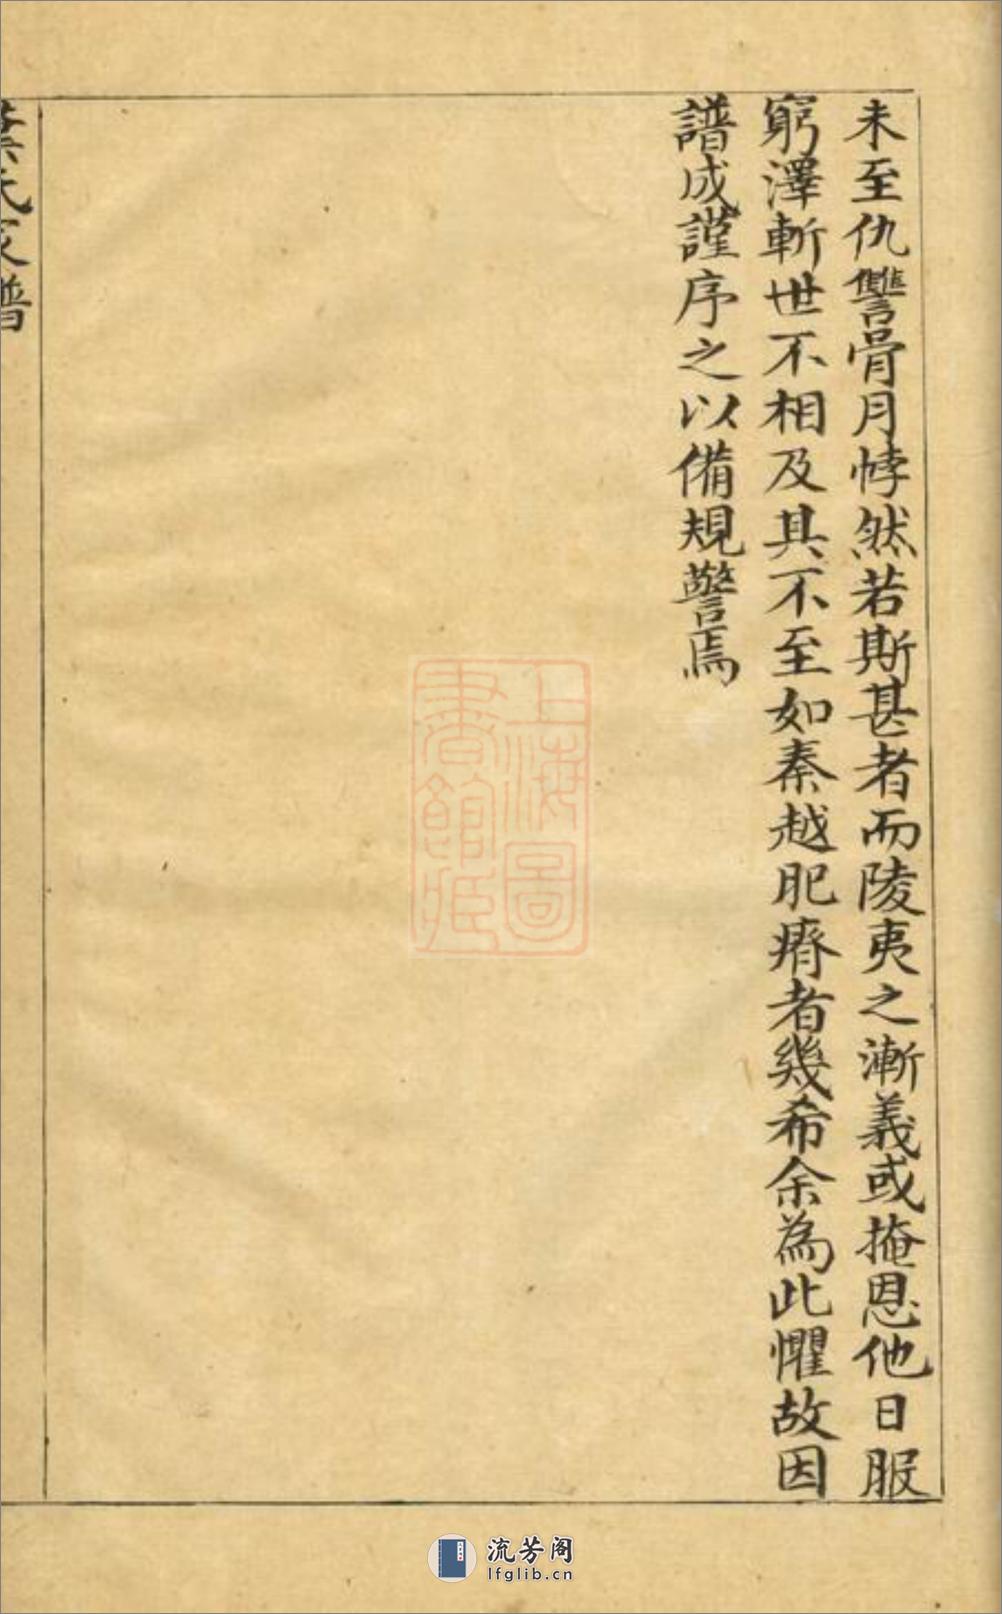 未至仇讐骨月悖然若斯甚者而陵夷之漸義或掩恩他日服
窮澤斬世不相及其不至如秦越肥瘠者幾希余為此懼故因
譜成謹序之以備規警焉
上海圖
書館藏
氏家譜
流芳阁
lfglib.cn